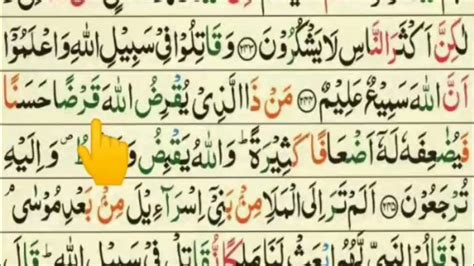 لٰكِنَّ اَكْثَرَ النَّاسِ لَا يَشْكُرُوْنَ ﴿۲۴۳﴾ وَقَاتِلُوْا فِیْ سَبِيْلِ اللّٰهِ وَاعْلَمُوْۤا
اَنَّ اللّٰهَ سَمِيْعٌ عَلِيْمٌ ﴿۲۴۴﴾ مَنْ ذَا الَّذِیْ يُقْرِضُ اللّٰهَ قَرْضًا حَسَنًا
فَيُضٰعِفَهٗ لَهٗۤ اَضْعَافًا كَثِيْرَةً ؕ وَاللّٰهُ يَقْبِضُ وَ ۪ وَاِلَيْهِ
تُرْجَعُوْنَ ﴿۲۴۵﴾ اَلَمْ تَرَ اِلَى الْمَلَاِ مِنْۢ بَنِیْۤ اِسْرَآءِيْلَ مِنْۢ بَعْدِ مُوْسٰی ۘ
اِذْ قَالُوْا لِنَبِیٍّ لَّهُمُ ابْعَثْ لَنَا مَلِكًا نُّقَاتِلْ فِیْ سَبِيْلِ اللّٰهِ ؕ قَالَ